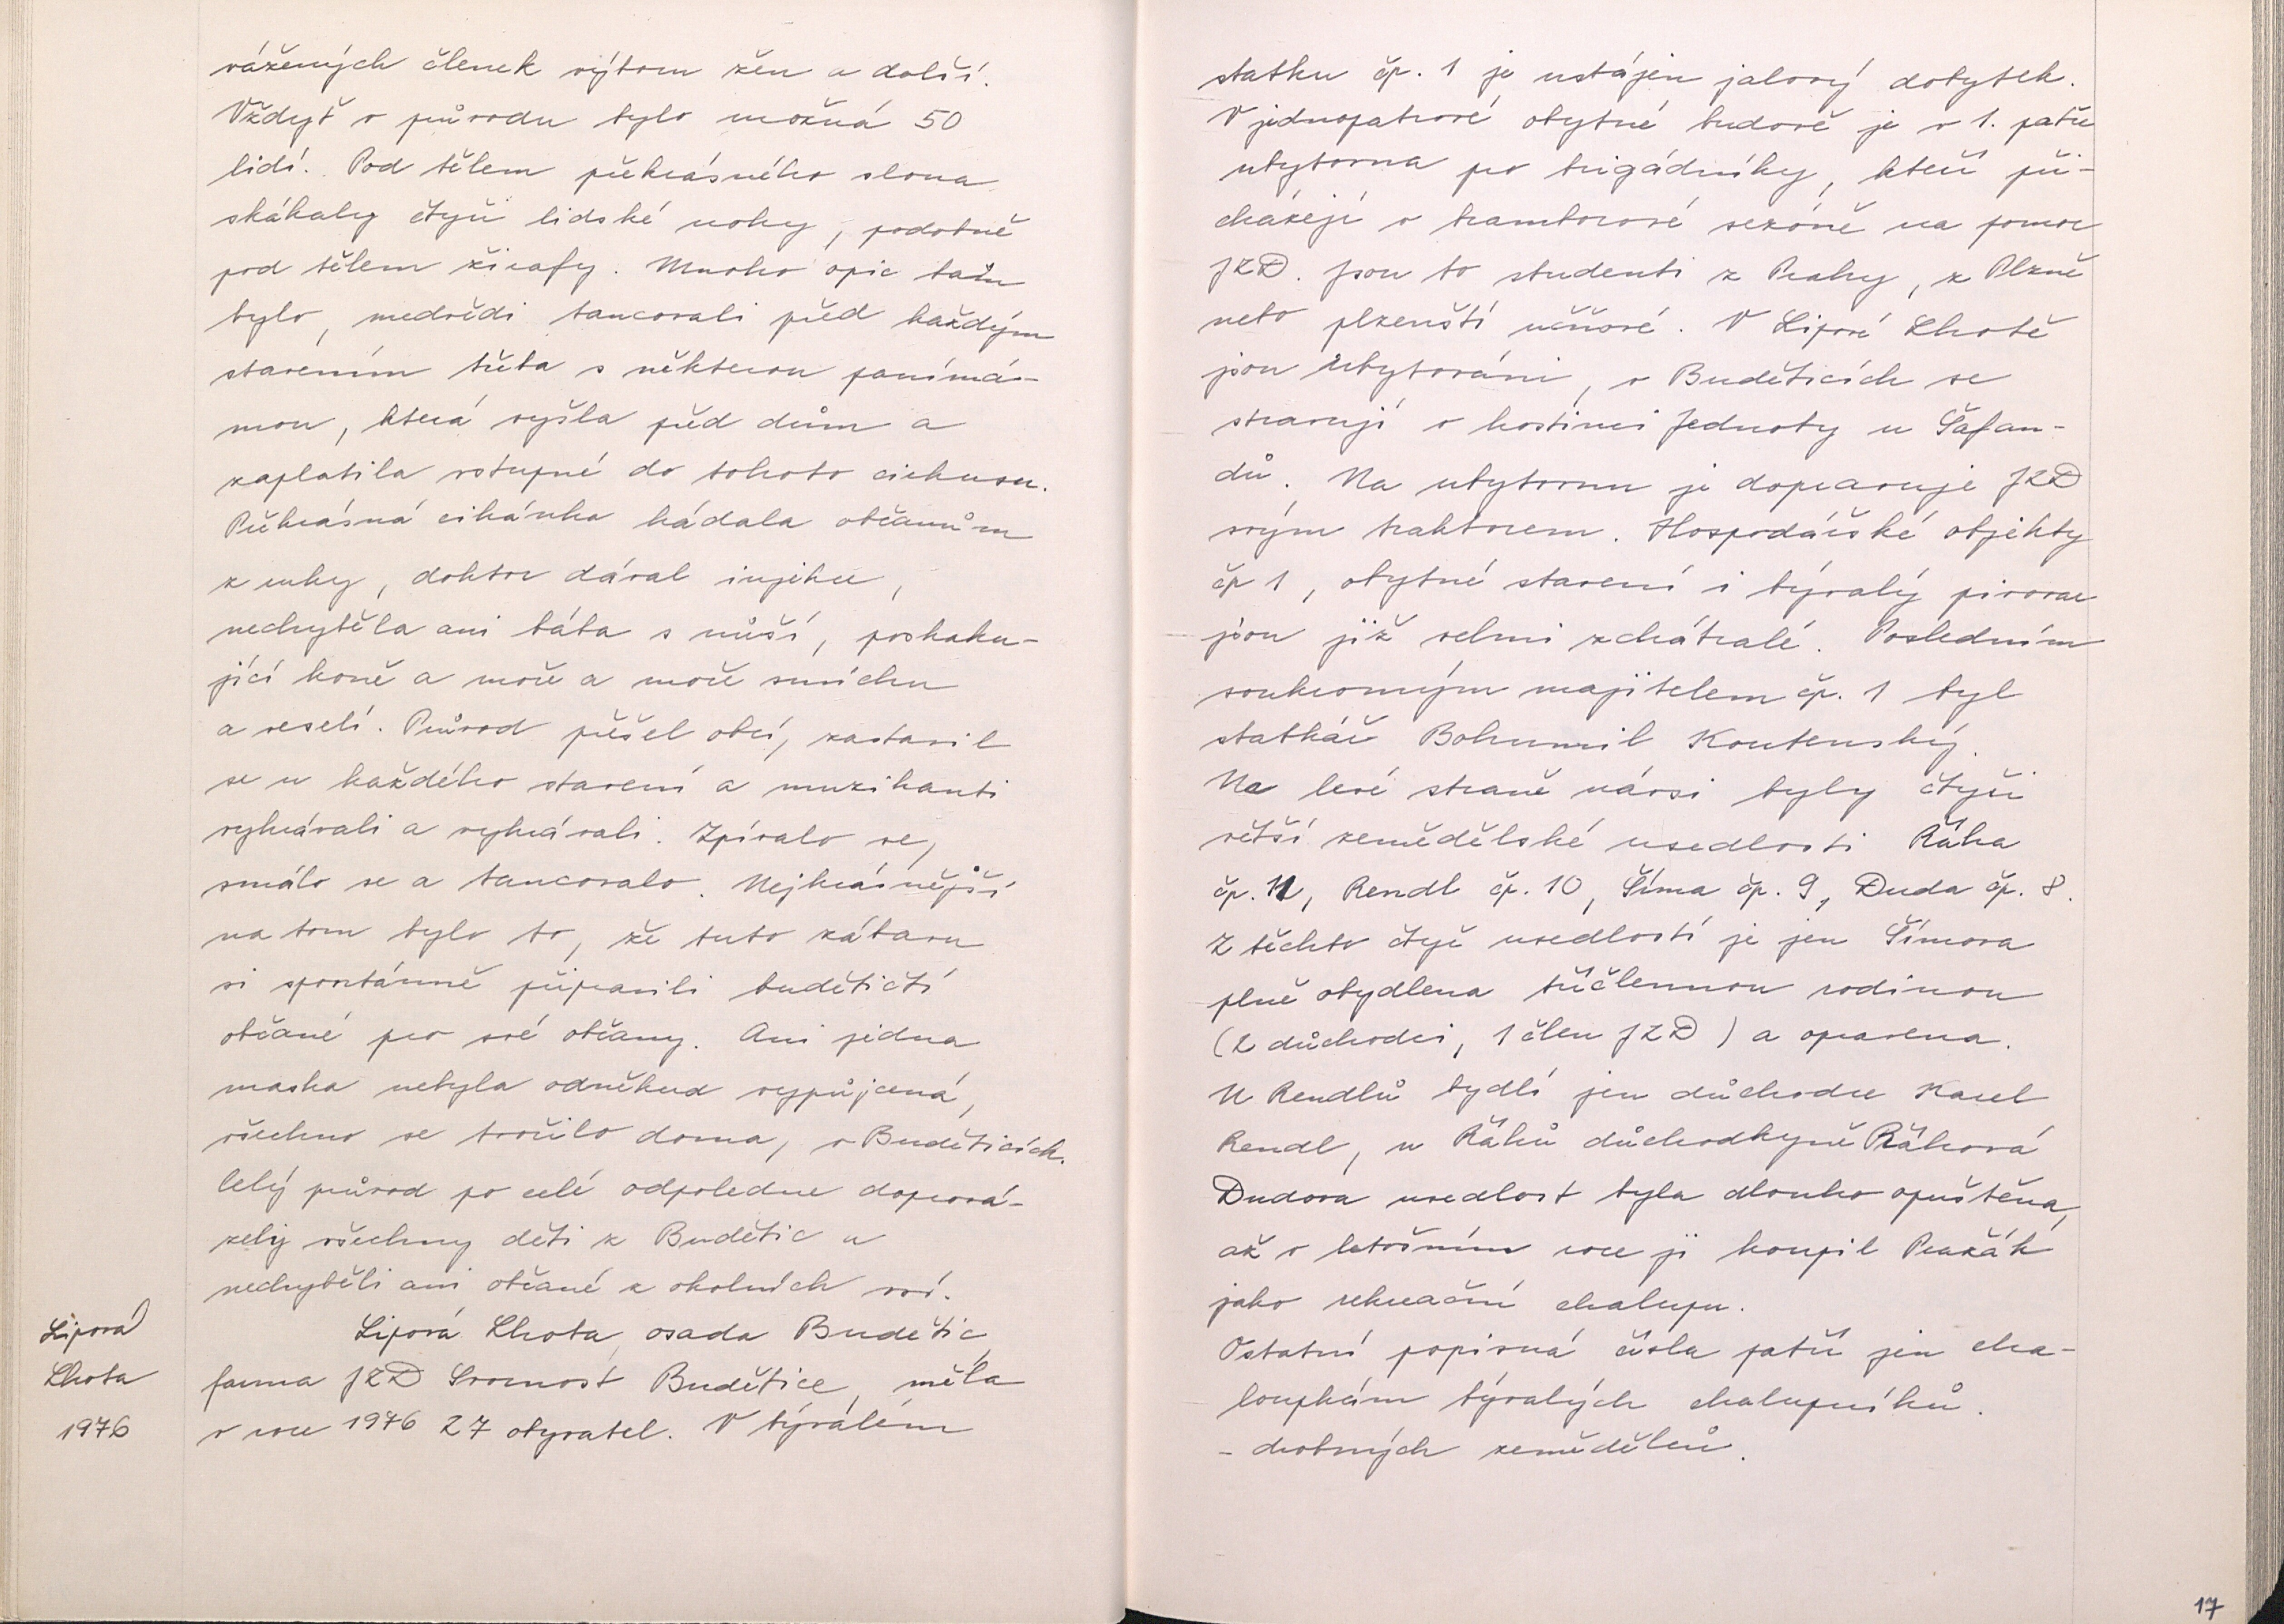 vážených členek výboru žen a další.
Vždyť v průvodu bylo možná 50
lidí. Pod tělem překrásného slona
skákaly čtyři lidské nohy, podobně
pod tělem žirafy. Mnoho opic tam
bylo, medvědi tancovali před každým
stavením třeba s některou panímá-
mou, která vyšla před dům a
zaplatila vstupné do tohoto cirkusu.
Překrásná cikánka hádala občanům
z ruky, doktor dával injekce,
nechyběla ani bába s nůší, poskaku-
jící koně a moře a moře smíchu
a veselí. Průvod přešel obcí, zastavil
se u každého stavení a muzikanti
vyhrávali a vyhrávali. Zpívalo se,
smálo se a tancovalo. Nejkrásnější
na tom bylo to, že tuto zábavu
si spontánně připravili budětičtí
občané pro své občany. Ani jedna
maska nebyla odněkud vypůjcená,
všechno se tvořilo doma, v Budětících.
Celý průvod po celé odpoledne doprová-
zely všechny děti z Budětic a
nechyběli ani občané z okolních vsí.
Lipová
Lhota
1976
Lipová Lhota, osada Budětic,
farma JZD Svornost Budětice, měla
v roce 1976 27 obyvatel. V bývalém
statku čp. 1 je ustájen jalový dobytek.
V jednopatrové obytné budově je v 1. patře
ubytovna pro brigádníky, kteří při-
cházejí v bramborové sezóně na pomoc
JZD. Jsou to studenti z Prahy, z Plzně
nebo plzenští učňové. V Lipové Lhotě
jsou ubytováni, v Budětících se
stravují v hostinci Jednoty u Šafan-
dů. Na ubytovnu je dopravuje JZD
svým traktorem. Hospodářské objekty
čp 1, obytné stavení i bývalý pivovar
jsou již velmi zchátralé. Posledním
soukromým majitelem čp. 1 byl
statkář Bohumil Koutenský.
Na levé straně návsi byly čtyři
větší zemědělské usedlosti Řáha
čp. 11, Rendl čp. 10, Šíma čp. 9, Duda čp. 8.
Z těchto čtyř usedlostí je jen Šímova
plně obydlena tříčlennou rodinou
(2 důchodci, 1 člen JZD) a opravena.
U Rendlů bydlí jen důchodce Karel
Rendl, u Řáhů důchodkyně Řáhová
Dudova usedlost byla dlouho opuštěna,
až v letošním roce ji koupil Pražák
jako rekreační chalupu.
Ostatní popisná čísla patří jen cha-
loupkám bývalých chalupníků.
- drobných zemědělců.
17